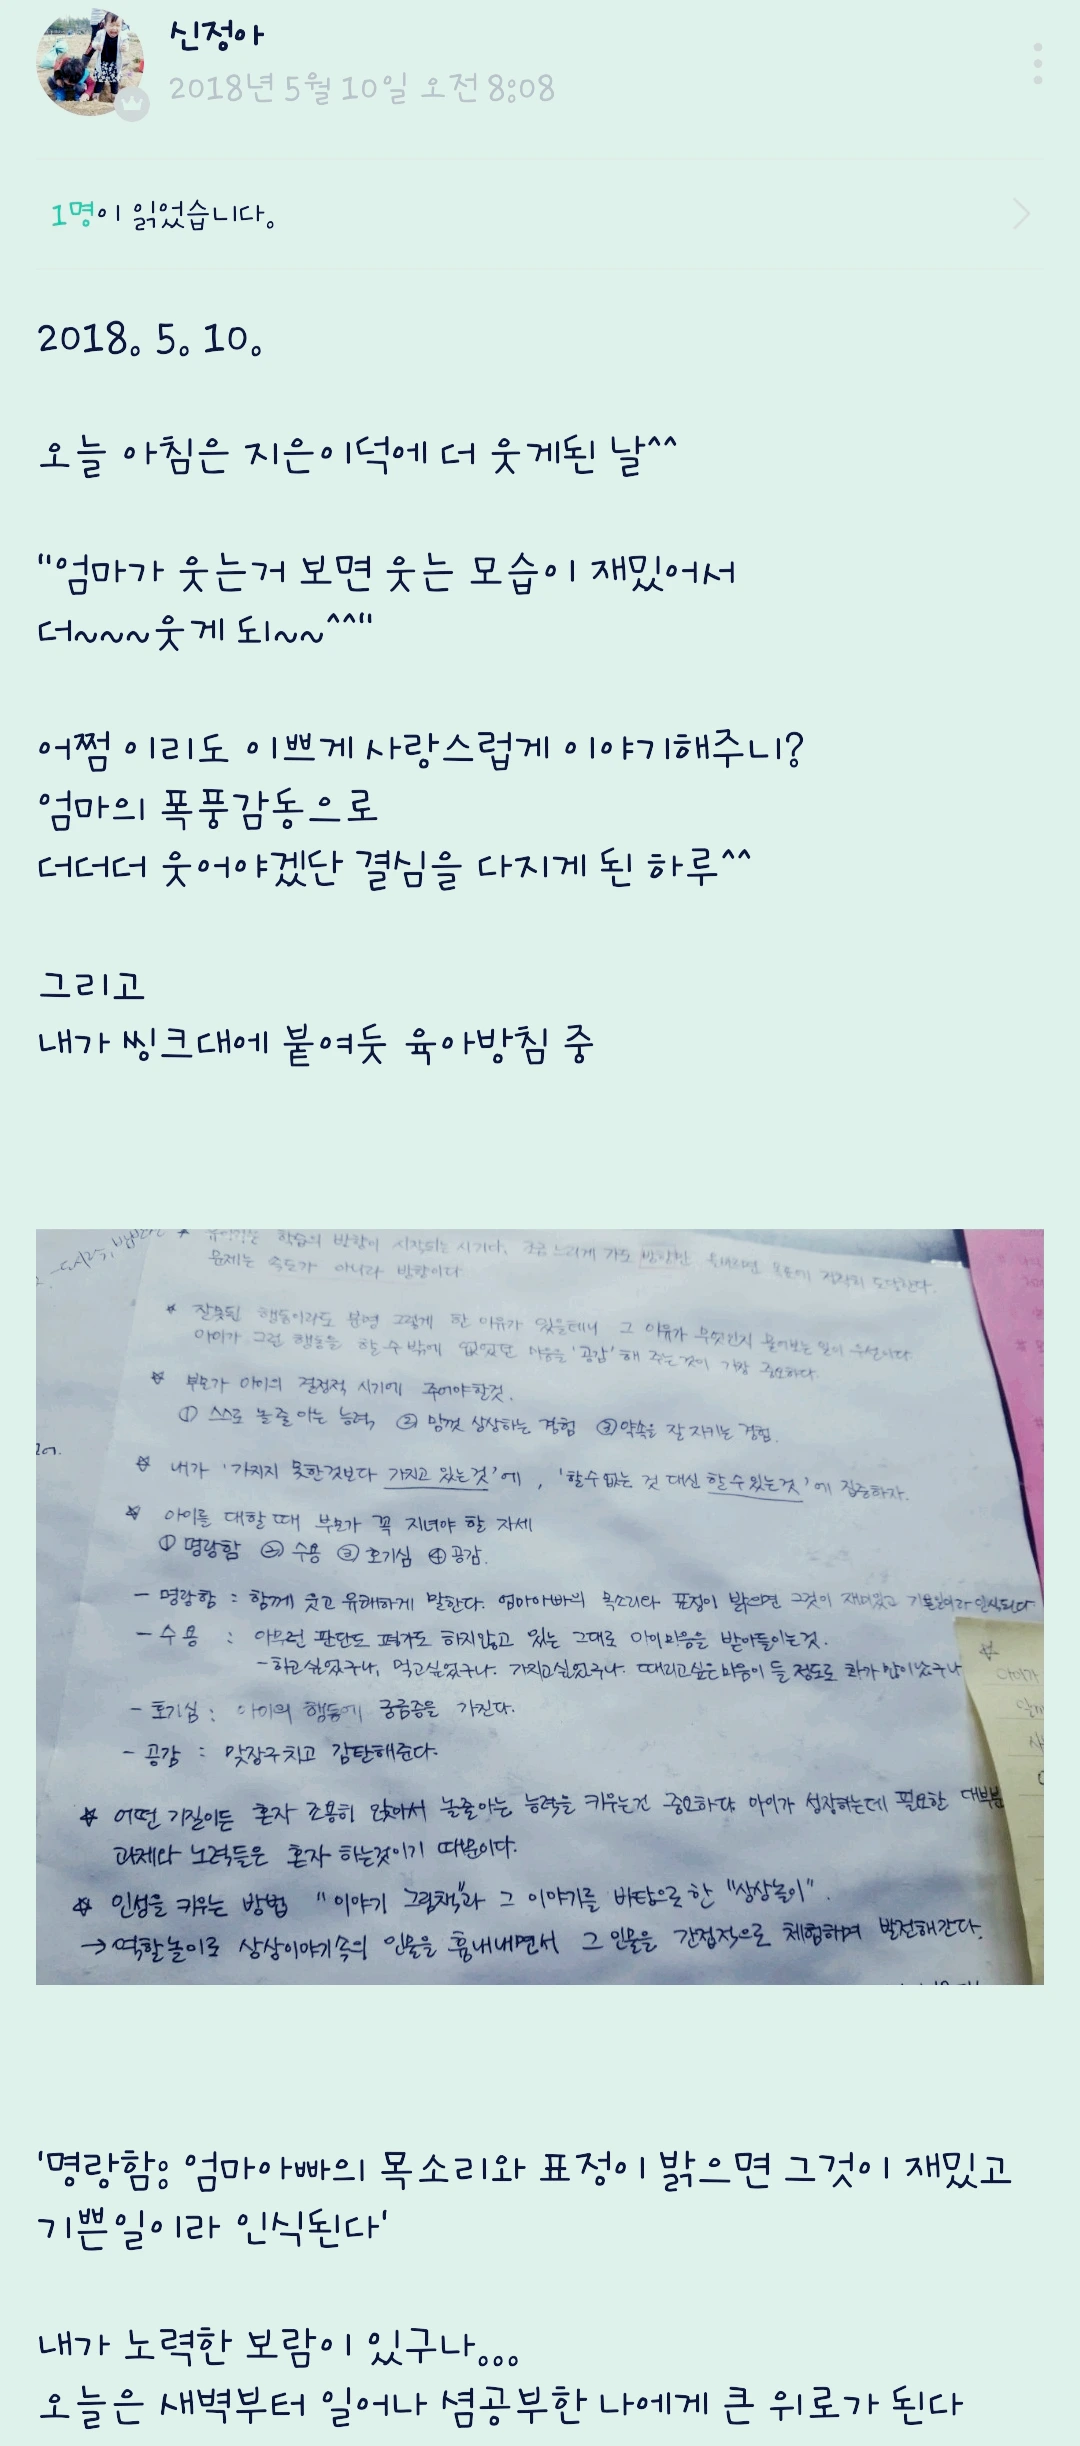 신정아
2018년 5월 10일 오전 8:08
1명이 읽었습니다.
2018. 5. 10.
오늘 아침은 지은이덕에 더 웃게된 날^^
"엄마가 웃는거 보면 웃는 모습이 재밌어서
더~~~웃게 되~~^^"
어쩜 이리도 이쁘게 사랑스럽게 이야기해주니?
엄마의 폭풍감동으로
더더더 웃어야겠단 결심을 다지게 된 하루^^
그리고
내가 씽크대에 붙여둣 육아방침 중
학습의 방향이 시작되는 시기다. 조금 느리게 가도
문제는 속도가 아니라 방향이다
* 잘못된 행동이라도 분명 그렇게 한 이유가 있을테니 그 이유가 무엇인지 물어보는 일이 우선이다.
아이가 그런 행동을 할 수 밖에 없었던 마음을 '공감'해 주는것이 가장 중요하다.
☆ 부모가 아이의 결정적 시기에 주어야할것.
① 스스로 놀줄 아는 능력 ② 맘껏 상상하는 경험 ③ 약속을 잘 지키는 경험.
☆ 내가 '가지지 못한것보다 가지고 있는것'에, '할수 없는 것 대신 할수있는것'에 집중하자.
☆ 아이를 대할 때 부모가 꼭 지녀야 할 자세
① 명랑함 ② 수용 ③ 호기심 ④ 공감.
- 명랑함 : 함께 웃고 유쾌하게 말한다. 엄마아빠의 목소리와 표정이 밝으면 그것이 재미있고 기쁜일이라 인식된다
- 수용 : 아무런 판단도 평가도 하지않고 있는 그대로 아이마음을 받아들이는것.
- 하고싶었구나, 먹고싶었구나. 가지고싶었구나. 때리고싶은마음이 들 정도로 화가 많이났구나
- 호기심 : 아이의 행동에 궁금증을 가진다.
- 공감 : 맞장구치고 감탄해준다.
☆ 어떤 기질이든 혼자 조용히 앉아서 놀줄아는 능력을 키우는건 중요하다. 아이가 성장하는데 필요한 대부분
과제와 노력들은 혼자 하는것이기 때문이다.
☆ 인성을 키우는 방법 "이야기 그림책"과 그 이야기를 바탕으로 한 "상상놀이".
→ 역할놀이로 상상이야기속의 인물을 흉내내면서 그 인물을 간접적으로 체험하며 발전해간다.
아이가
'명랑함: 엄마아빠의 목소리와 표정이 밝으면 그것이 재밌고
기쁜일이라 인식된다'
내가 노력한 보람이 있구나...
오늘은 새벽부터 일어나 셤공부한 나에게 큰 위로가 된다